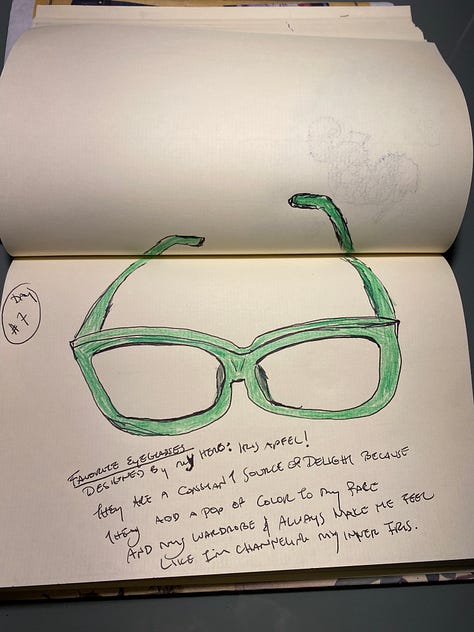 Day
#7
FAVORITE EYEGLASSES
DESIGNED BY MY HERO: IRIS APFEL!
THEY ARE A CONSTANT SOURCE OF DELIGHT BECAUSE
THEY ADD A POP OF COLOR TO MY FACE
AND MY WARDROBE & ALWAYS MAKE ME FEEL
LIKE I'M CHANNELING MY INNER IRIS.